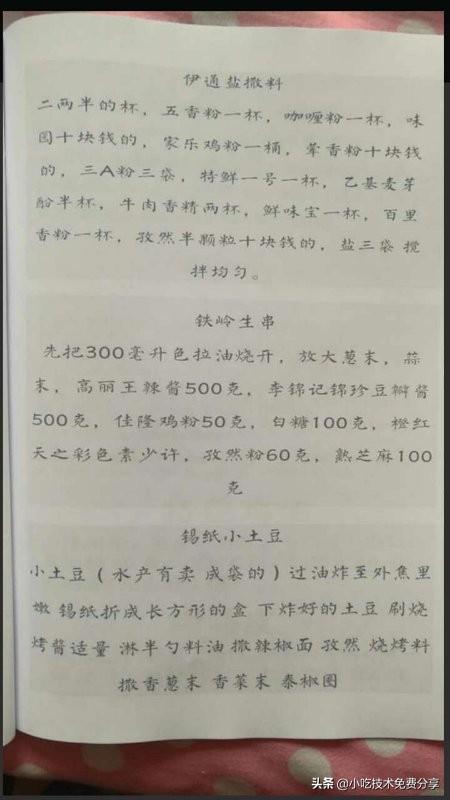 伊通盐撒料
二两半的杯，五香粉一杯，咖喱粉一杯，味
园十块钱的，家乐鸡粉一桶，荤香粉十块钱
的，三A粉三袋，特鲜一号一杯，乙基麦芽
酚半杯，牛肉香精两杯，鲜味宝一杯，百里
香粉一杯，孜然半颗粒十块钱的，盐三袋 搅
拌均匀。
铁岭生串
先把300毫升色拉油烧开，放大葱末，蒜
末，高丽王辣酱500克，李锦记锦珍豆瓣酱
500克，佳隆鸡粉50克，白糖100克，橙红
天之彩色素少许，孜然粉60克，熟芝麻100
克
锡纸小土豆
小土豆（水产有卖 成袋的）过油炸至外焦里
嫩 锡纸折成长方形的盒 下炸好的土豆 刷烧
烤酱适量 淋半勺料油 撒辣椒面 孜然 烧烤料
撒香葱末 香菜末 泰椒圈
头条 @小吃技术免费分享